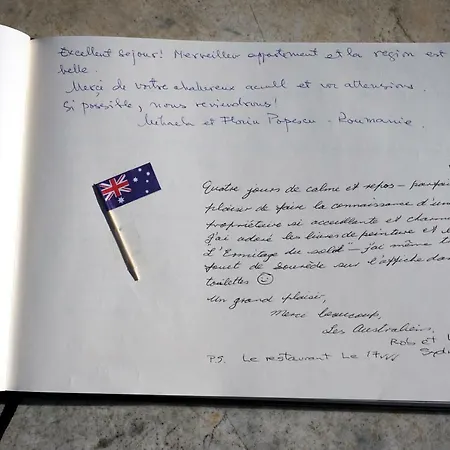 Excellent sejour! Merveilleux appartement et la region est
belle.
Merci de votre chaleureux et vos attensions.
Si possible, nous reviendrons!
Mihaela et Florin Popescu - Roumanie.
Quatre jours de calme et repos — parfait
plaisir de faire la connaissance d'une
propriétaire si accueillante et charm
J'ai adoré les livres de peinture et
L'"Ermitage du soleil" — j'ai même
sur l'affiche dans
toilettes ☺
Un grand plaisir,
Merci beaucoup,
Les Australiens,
Rob et
Syd
P.S. Le restaurant Le 17